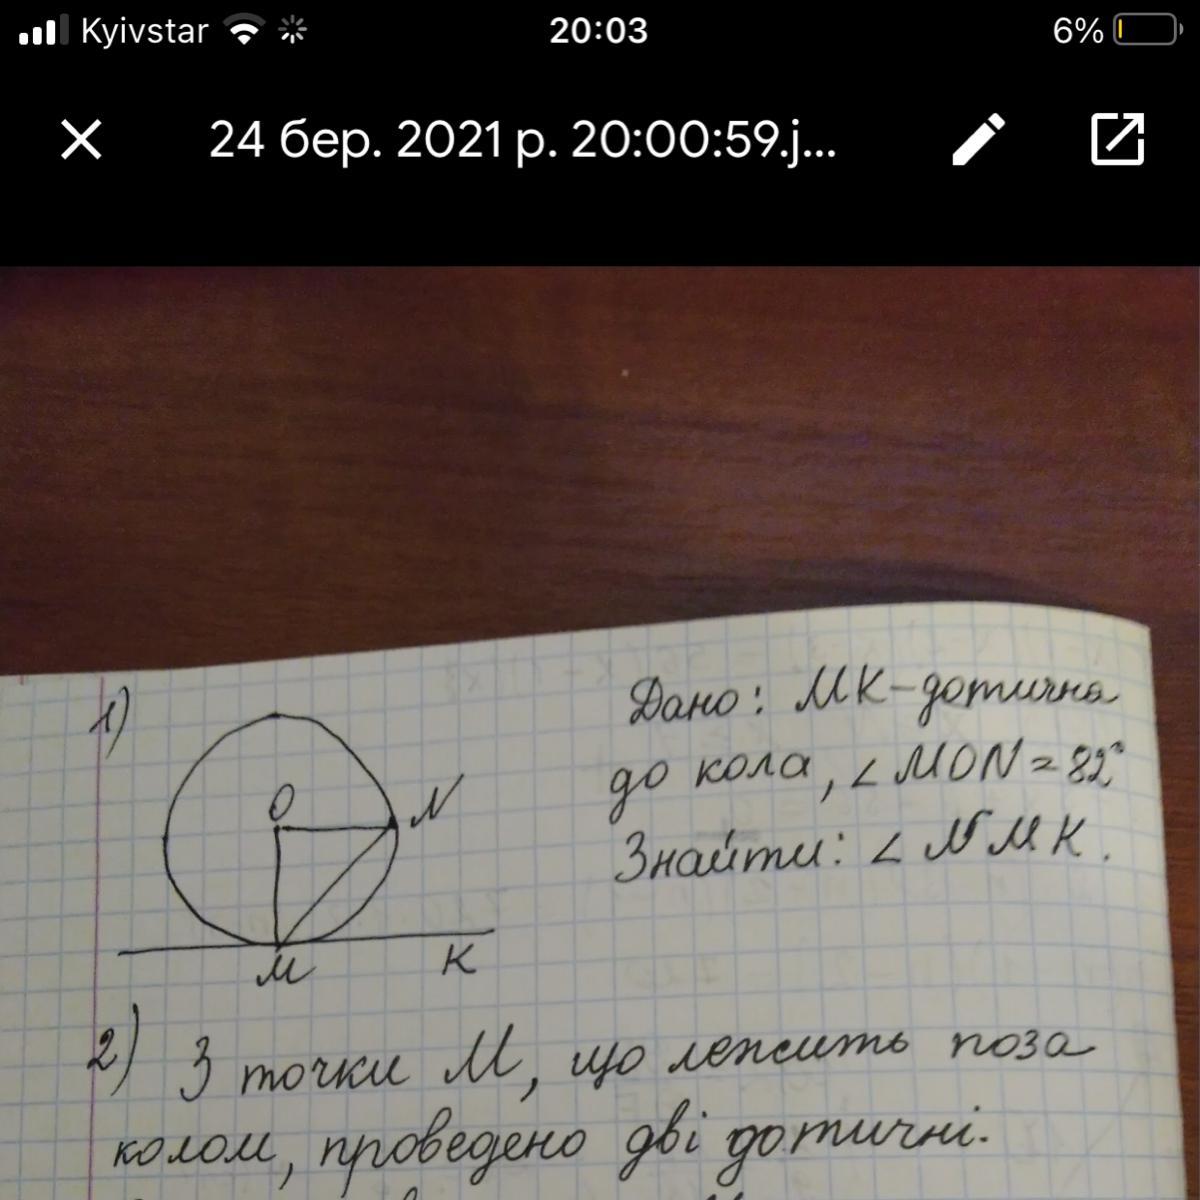 Kyivstar 20:03 6%
24 бер. 2021 р. 20:00:59.j...
1)
Дано: МК-дотична
до кола, ∠MON=82°
Знайти: ∠NMK.
O
N
M
K
2) З точки М, що лежить поза
колом, проведено дві дотичні.